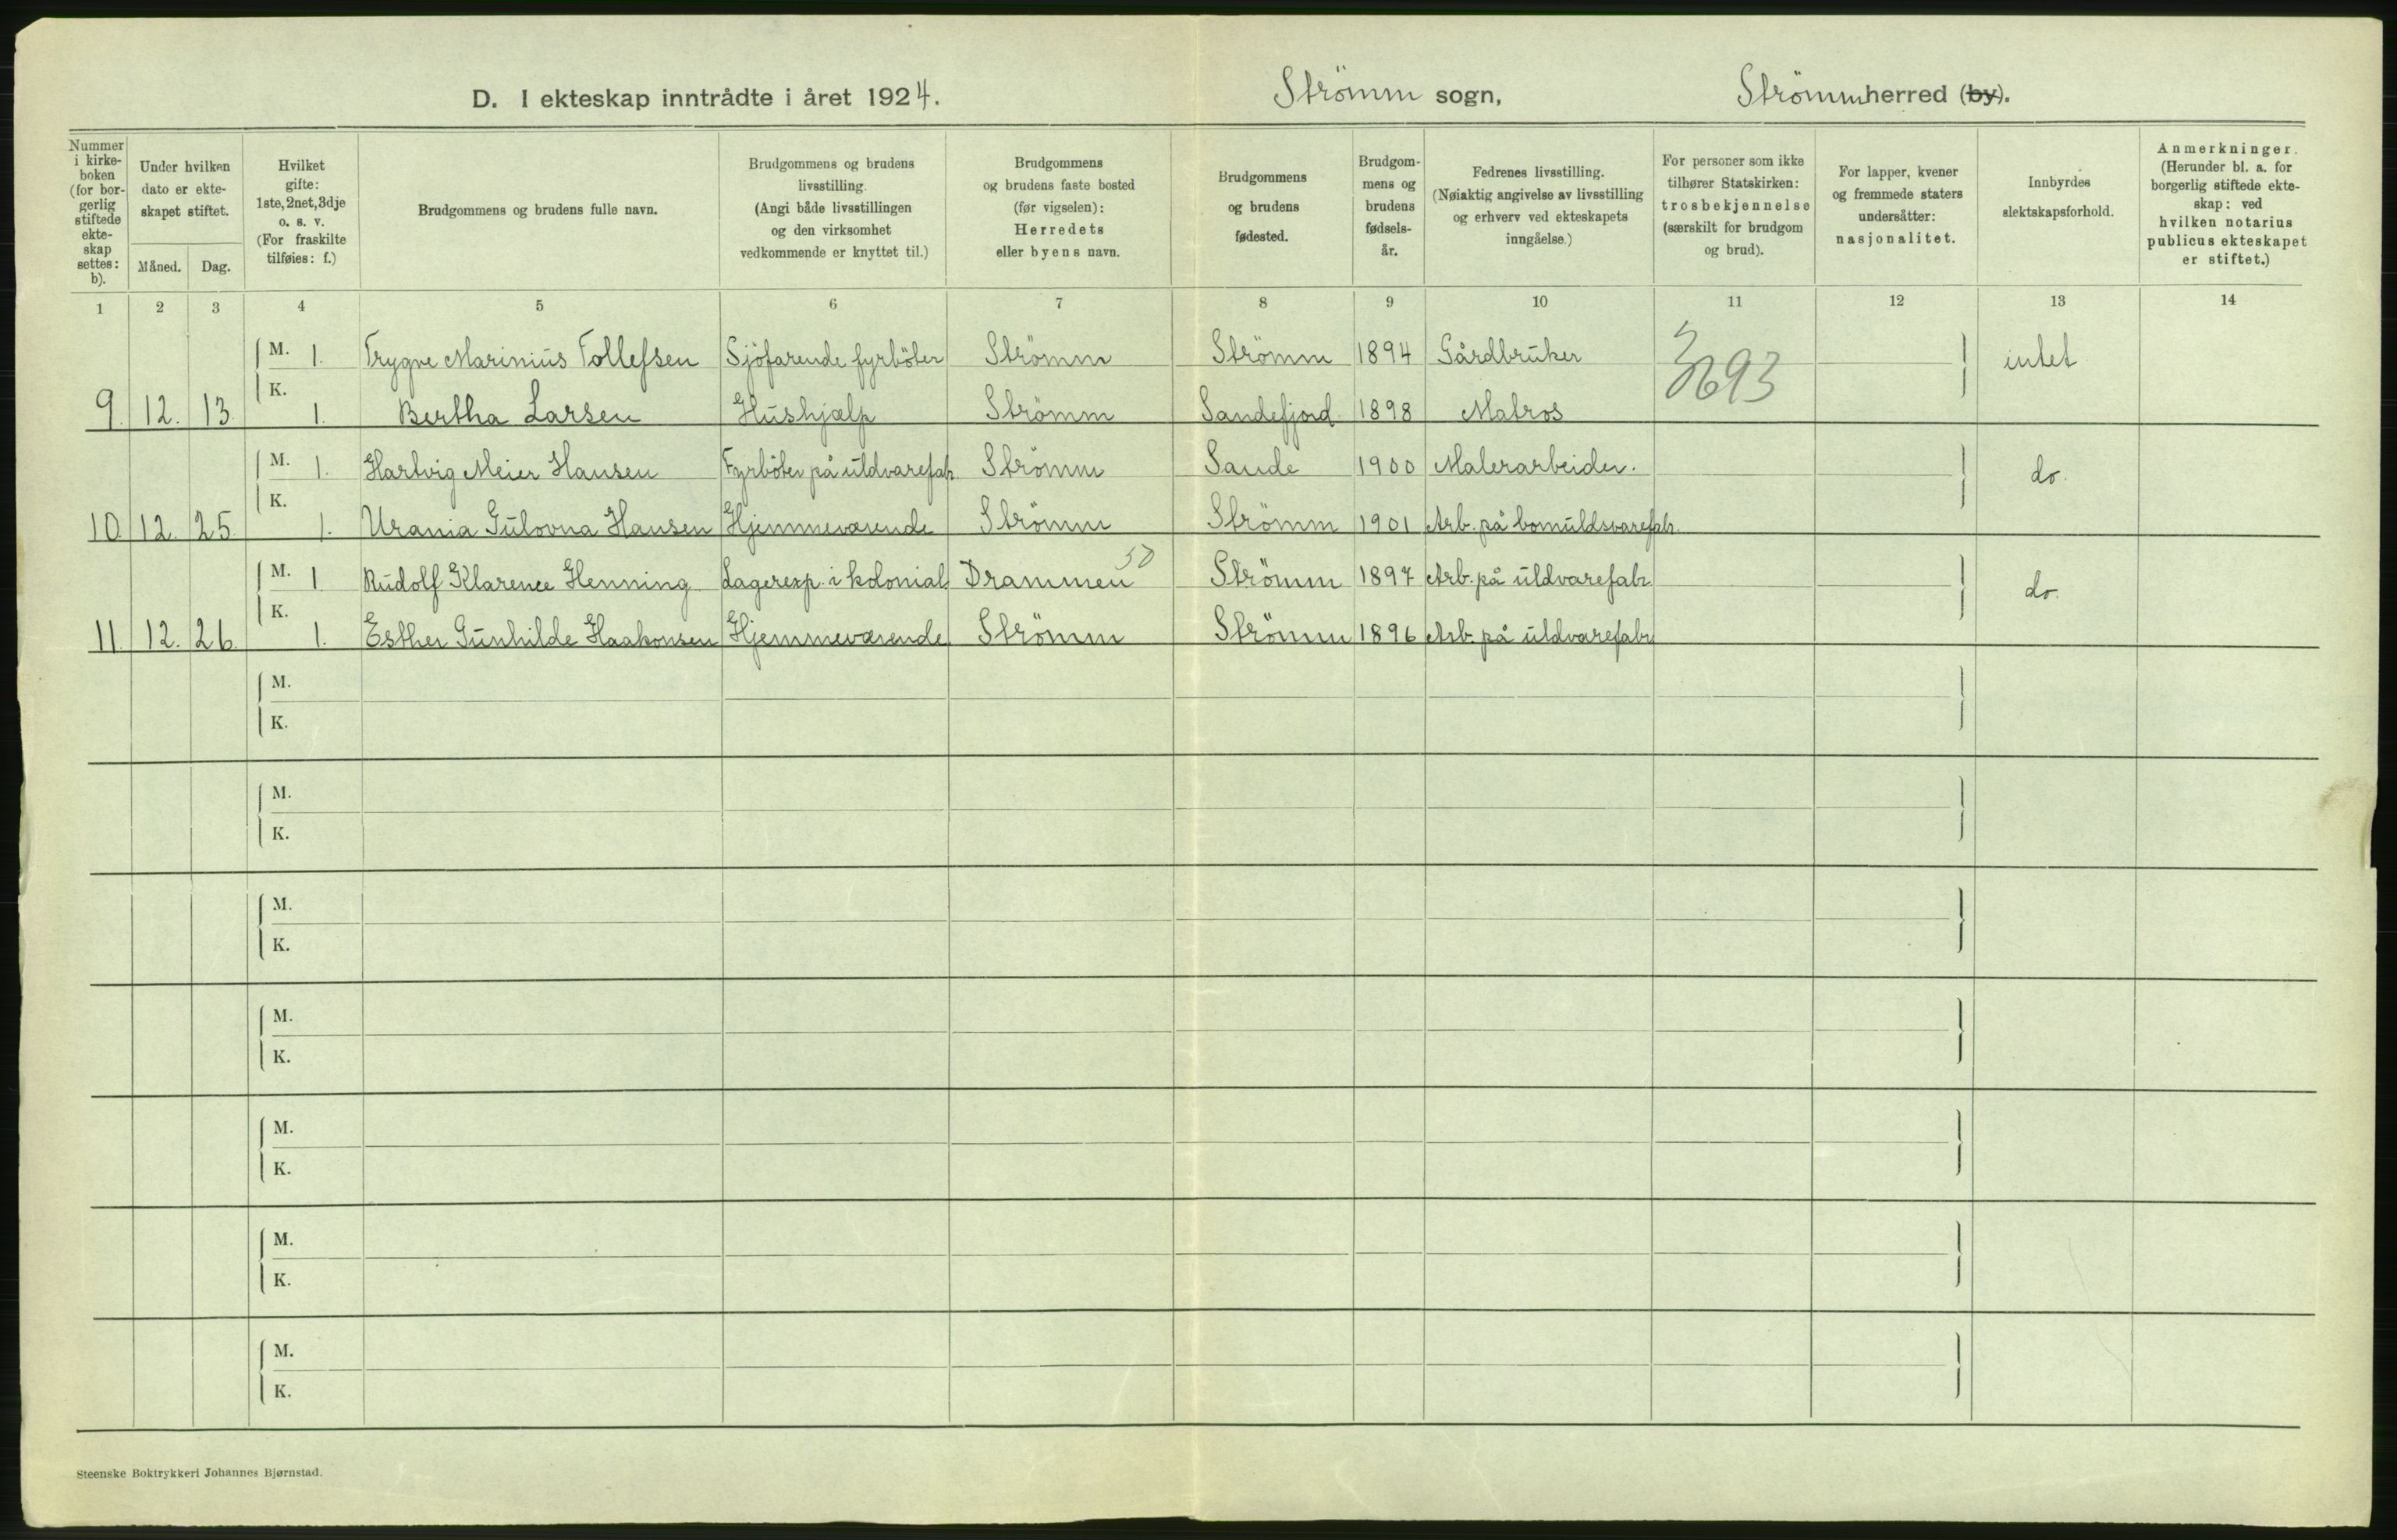 D. I ekteskap inntrådte i året 1924. Strömm sogn, Strömm herred (by).
Nummer i kirke-boken (for bor-gerlig stiftede ekte-skap settes: b).
Under hvilken dato er ekte-skapet stiftet.
Måned. Dag.
Hvilket gifte: 1ste, 2net, 3dje o. s. v. (For fraskilte tilføies: f.)
Brudgommens og brudens fulle navn.
Brudgommens og brudens livsstilling. (Angi både livsstillingen og den virksomhet vedkommende er knyttet til.)
Brudgommens og brudens faste bosted (før vigselen): Herredets eller byens navn.
Brudgommens og brudens fødested.
Brudgom-mens og brudens fødsels-år.
Fedrenes livsstilling. (Nøiaktig angivelse av livsstilling og erhverv ved ekteskapets inngåelse.)
For personer som ikke tilhører Statskirken: trosbekjennelse (særskilt for brudgom og brud).
For lapper, kvener og fremmede staters undersåtter: nasjonalitet.
Innbyrdes slektskapsforhold.
Anmerkninger. (Herunder bl. a. for borgerlig stiftede ekte-skap: ved hvilken notarius publicus ekteskapet er stiftet.)
1 2 3 4 5 6 7 8 9 10 11 12 13 14
M. 1. Trygve Marinius Tollefsen Sjöfarende fyrböter Strömm Strömm 1894 Gårdbruker intet
9. 12. 13. K. 1. Bertha Larsen Hushjælp Strömm Sandefjord 1898 Matros 3693
M. 1. Hartvig Meier Hansen Fyrböter på uldvarefab. Strömm Sande 1900 Malerarbeider. do.
10. 12. 25. K. 1. Urania Gulovna Hansen Hjemmeværende Strömm Strömm 1901 Arb. på bomuldsvarefabr.
M. 1 Rudolf Klarence Henning Lagerexp. i kolonial. Drammen Strömm 1897 Arb. på uldvarefabr. do.
11. 12. 26. K. 1. Esther Gunhilde Haakonsen Hjemmeværende Strömm Strömm 1896 Arb. på uldvarefabr.
M.
K.
M.
K.
M.
K.
M.
K.
M.
K.
M.
K.
M.
K.
Steenske Boktrykkeri Johannes Bjørnstad.